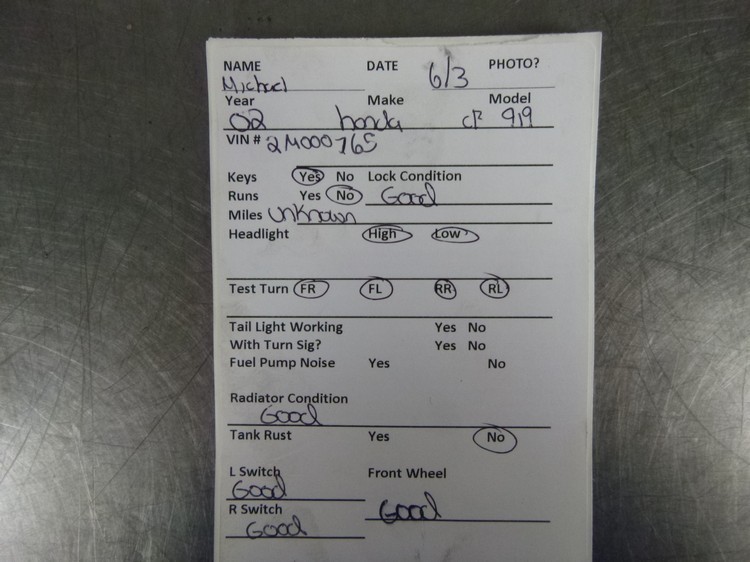 NAME DATE 6/3 PHOTO?
Michael
Year Make Model
02 honda cB 919
VIN # 2M000765
Keys Yes No Lock Condition
Runs Yes No Good
Miles Unknown
Headlight High Low
Test Turn FR FL RR RL
Tail Light Working Yes No
With Turn Sig? Yes No
Fuel Pump Noise Yes No
Radiator Condition
Good
Tank Rust Yes No
L Switch Front Wheel
Good
R Switch Good
Good